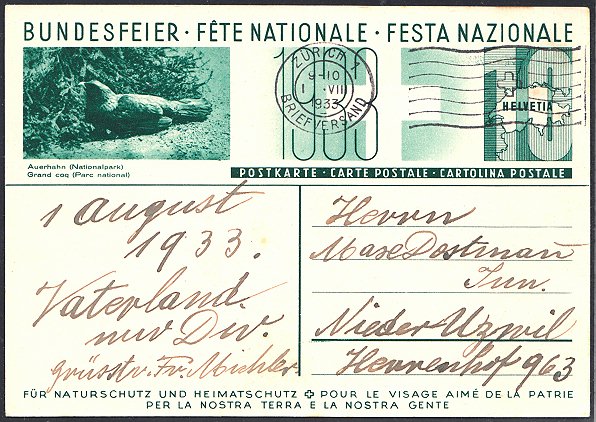 BUNDESFEIER · FÊTE NATIONALE · FESTA NAZIONALE
1933
ZÜRICH X
9-10
1 · VIII
1933
BRIEFVERSAND
10
HELVETIA
Auerhahn (Nationalpark)
Grand coq (Parc national)
POSTKARTE · CARTE POSTALE · CARTOLINA POSTALE
1 August
1933.
Vaterland
nur Div.
grüsstr. Fr. Michler
Herrn
Max Dostmañ
Jun.
Nieder Uzwil
Herrenhof 963
FÜR NATURSCHUTZ UND HEIMATSCHUTZ POUR LE VISAGE AIMÉ DE LA PATRIE
PER LA NOSTRA TERRA E LA NOSTRA GENTE